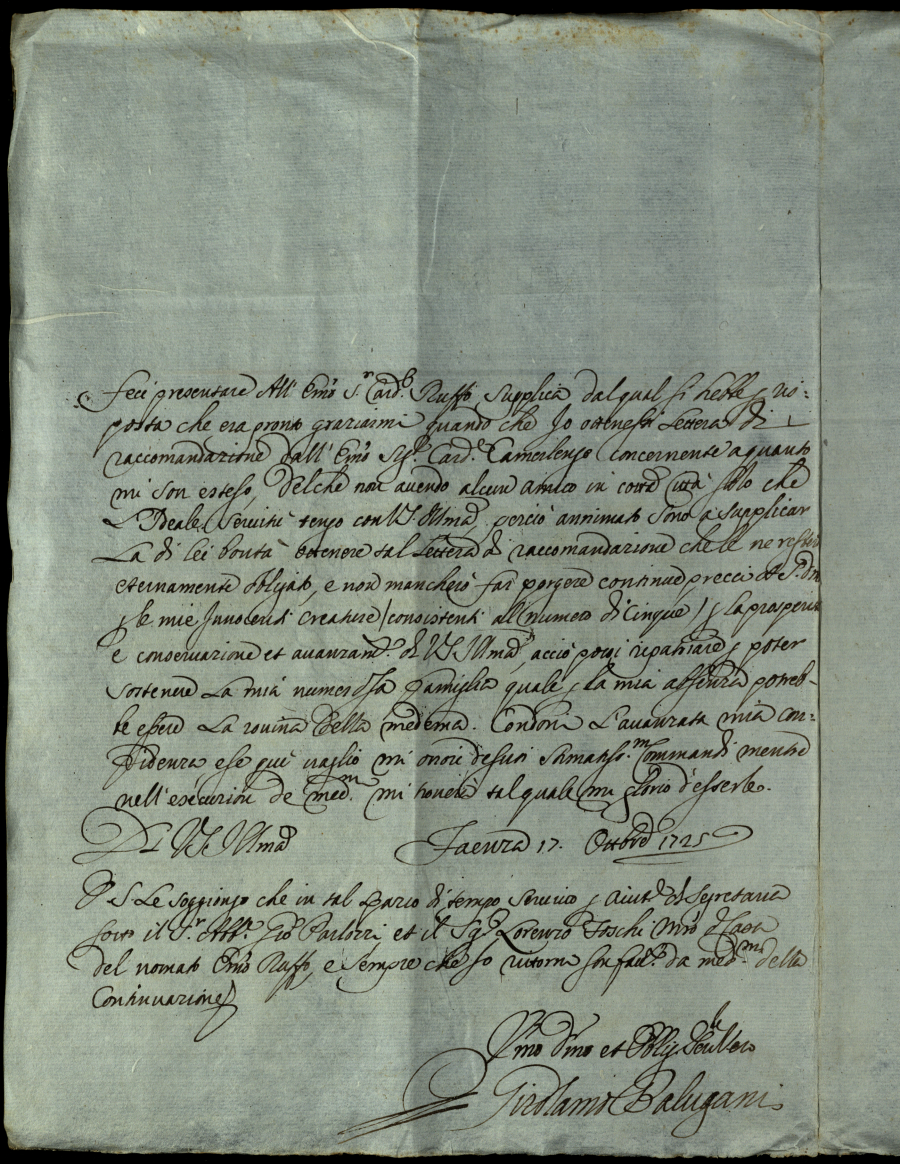 Feci presentare All' Emo S.r Card.l Ruffo supplica dal qual si hebbe p ris:
posta che era pronto graziarmi quando che Jo ottenessi Lettera di
raccomandazione dall' Emo Sig.r Card.l Camerlengo concernente a quanto
mi son esteso, del che non avendo alcun amico in cotta Città solo che
L'Ideale servitù tengo con VS Illma, perciò annimato sono a supplicar
La di lei bontà ottenere tal Lettera di raccomandazione che le ne resterò
eternamente obligato, e non mancherò far porgere continue precci
p le mie Innocenti creature (consistenti all numero di Cinque) p la prosperità
e conservazione et avanzam.to di VS Illma, acciò possi ripatriare p poter
sostenere La mia numerosa famiglia quale p la mia assenza potreb-
be essere La rovina della medema. Condoni L'avanzata mia con:
fidenza e se qui vaglio mi onori de suoi Stimatiss.mi Commandi mentre
nell' esecuzion de med.mi mi troverà tal quale mi glorio d'esserle.
Di VS Illma Faenza 17. Ottobre 1725
P S Le soggiongo che in tal spazio di tempo servivo p aiut.e di Segretaria
sotto il S.r Abb.e Gio Parlozzi, et il Sig.r Lorenzo Foschi Mro di Casa
del nomato Emo Ruffo, e sempre che Jo ritorni son da med.mi della
Continuazione
Umo Dmo et Oblig Servitore
Girolamo Balugani